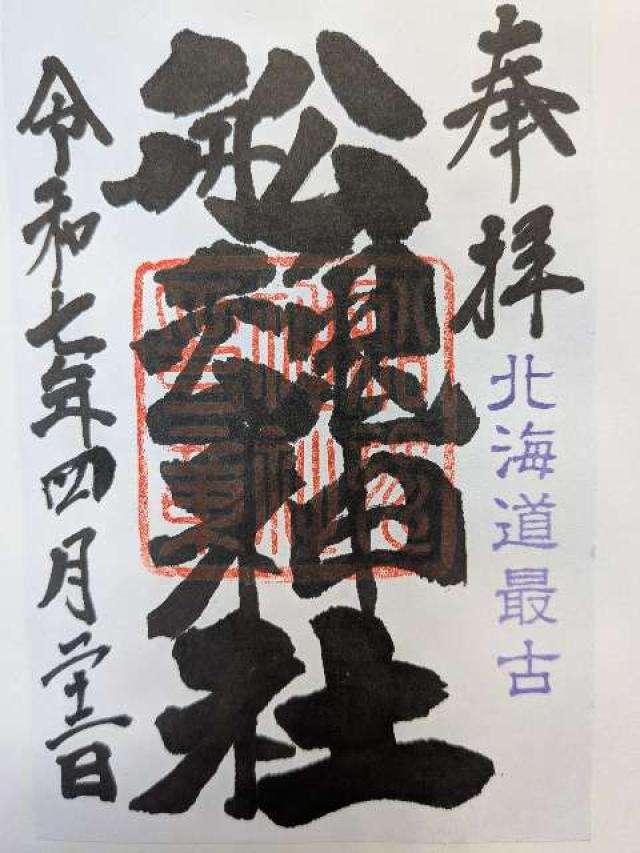 奉拝
北海道最古
舩魂神社
令和七年四月二十二日